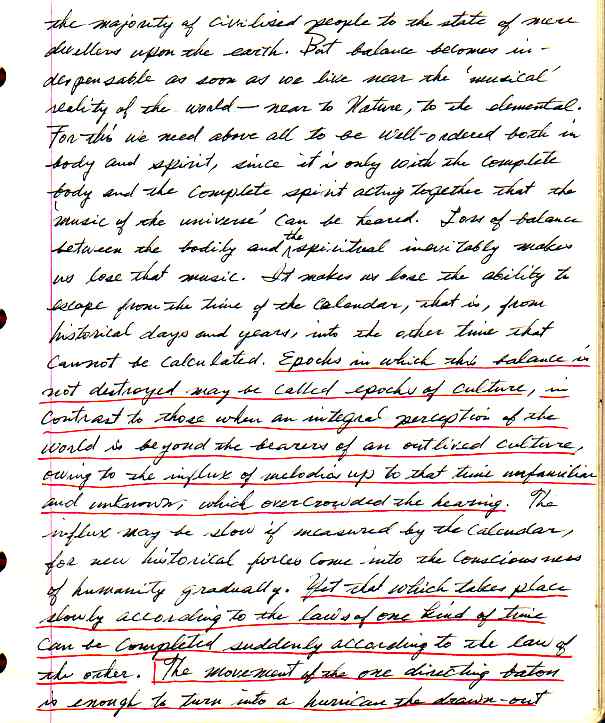 the majority of civilised people to the state of mere
dwellers upon the earth. But balance becomes in-
despensable as soon as we live near the 'musical'
reality of the world — near to Nature, to the elemental.
For this we need above all to be well-ordered both in
body and spirit, since it is only with the complete
body and the complete spirit acting together that the
'music of the universe' can be heared. Loss of balance
between the bodily and the spiritual inevitably makes
us lose that music. It makes us lose the ability to
escape from the time of the calendar, that is, from
historical days and years, into the other time that
cannot be calculated. Epochs in which this balance is
not destroyed may be called epochs of culture, in
contrast to those when an integral perception of the
world is beyond the bearers of an outlived culture,
owing to the influx of melodies up to that time unfamiliar
and unknown, which overcrowded the hearing. The
influx may be slow if measured by the calendar,
for new historical forces come into the consciousness
of humanity gradually. Yet that which takes place
slowly according to the laws of one kind of time
can be completed suddenly according to the law of
the other. The movement of the one directing baton
is enough to turn into a hurrican the drawn-out